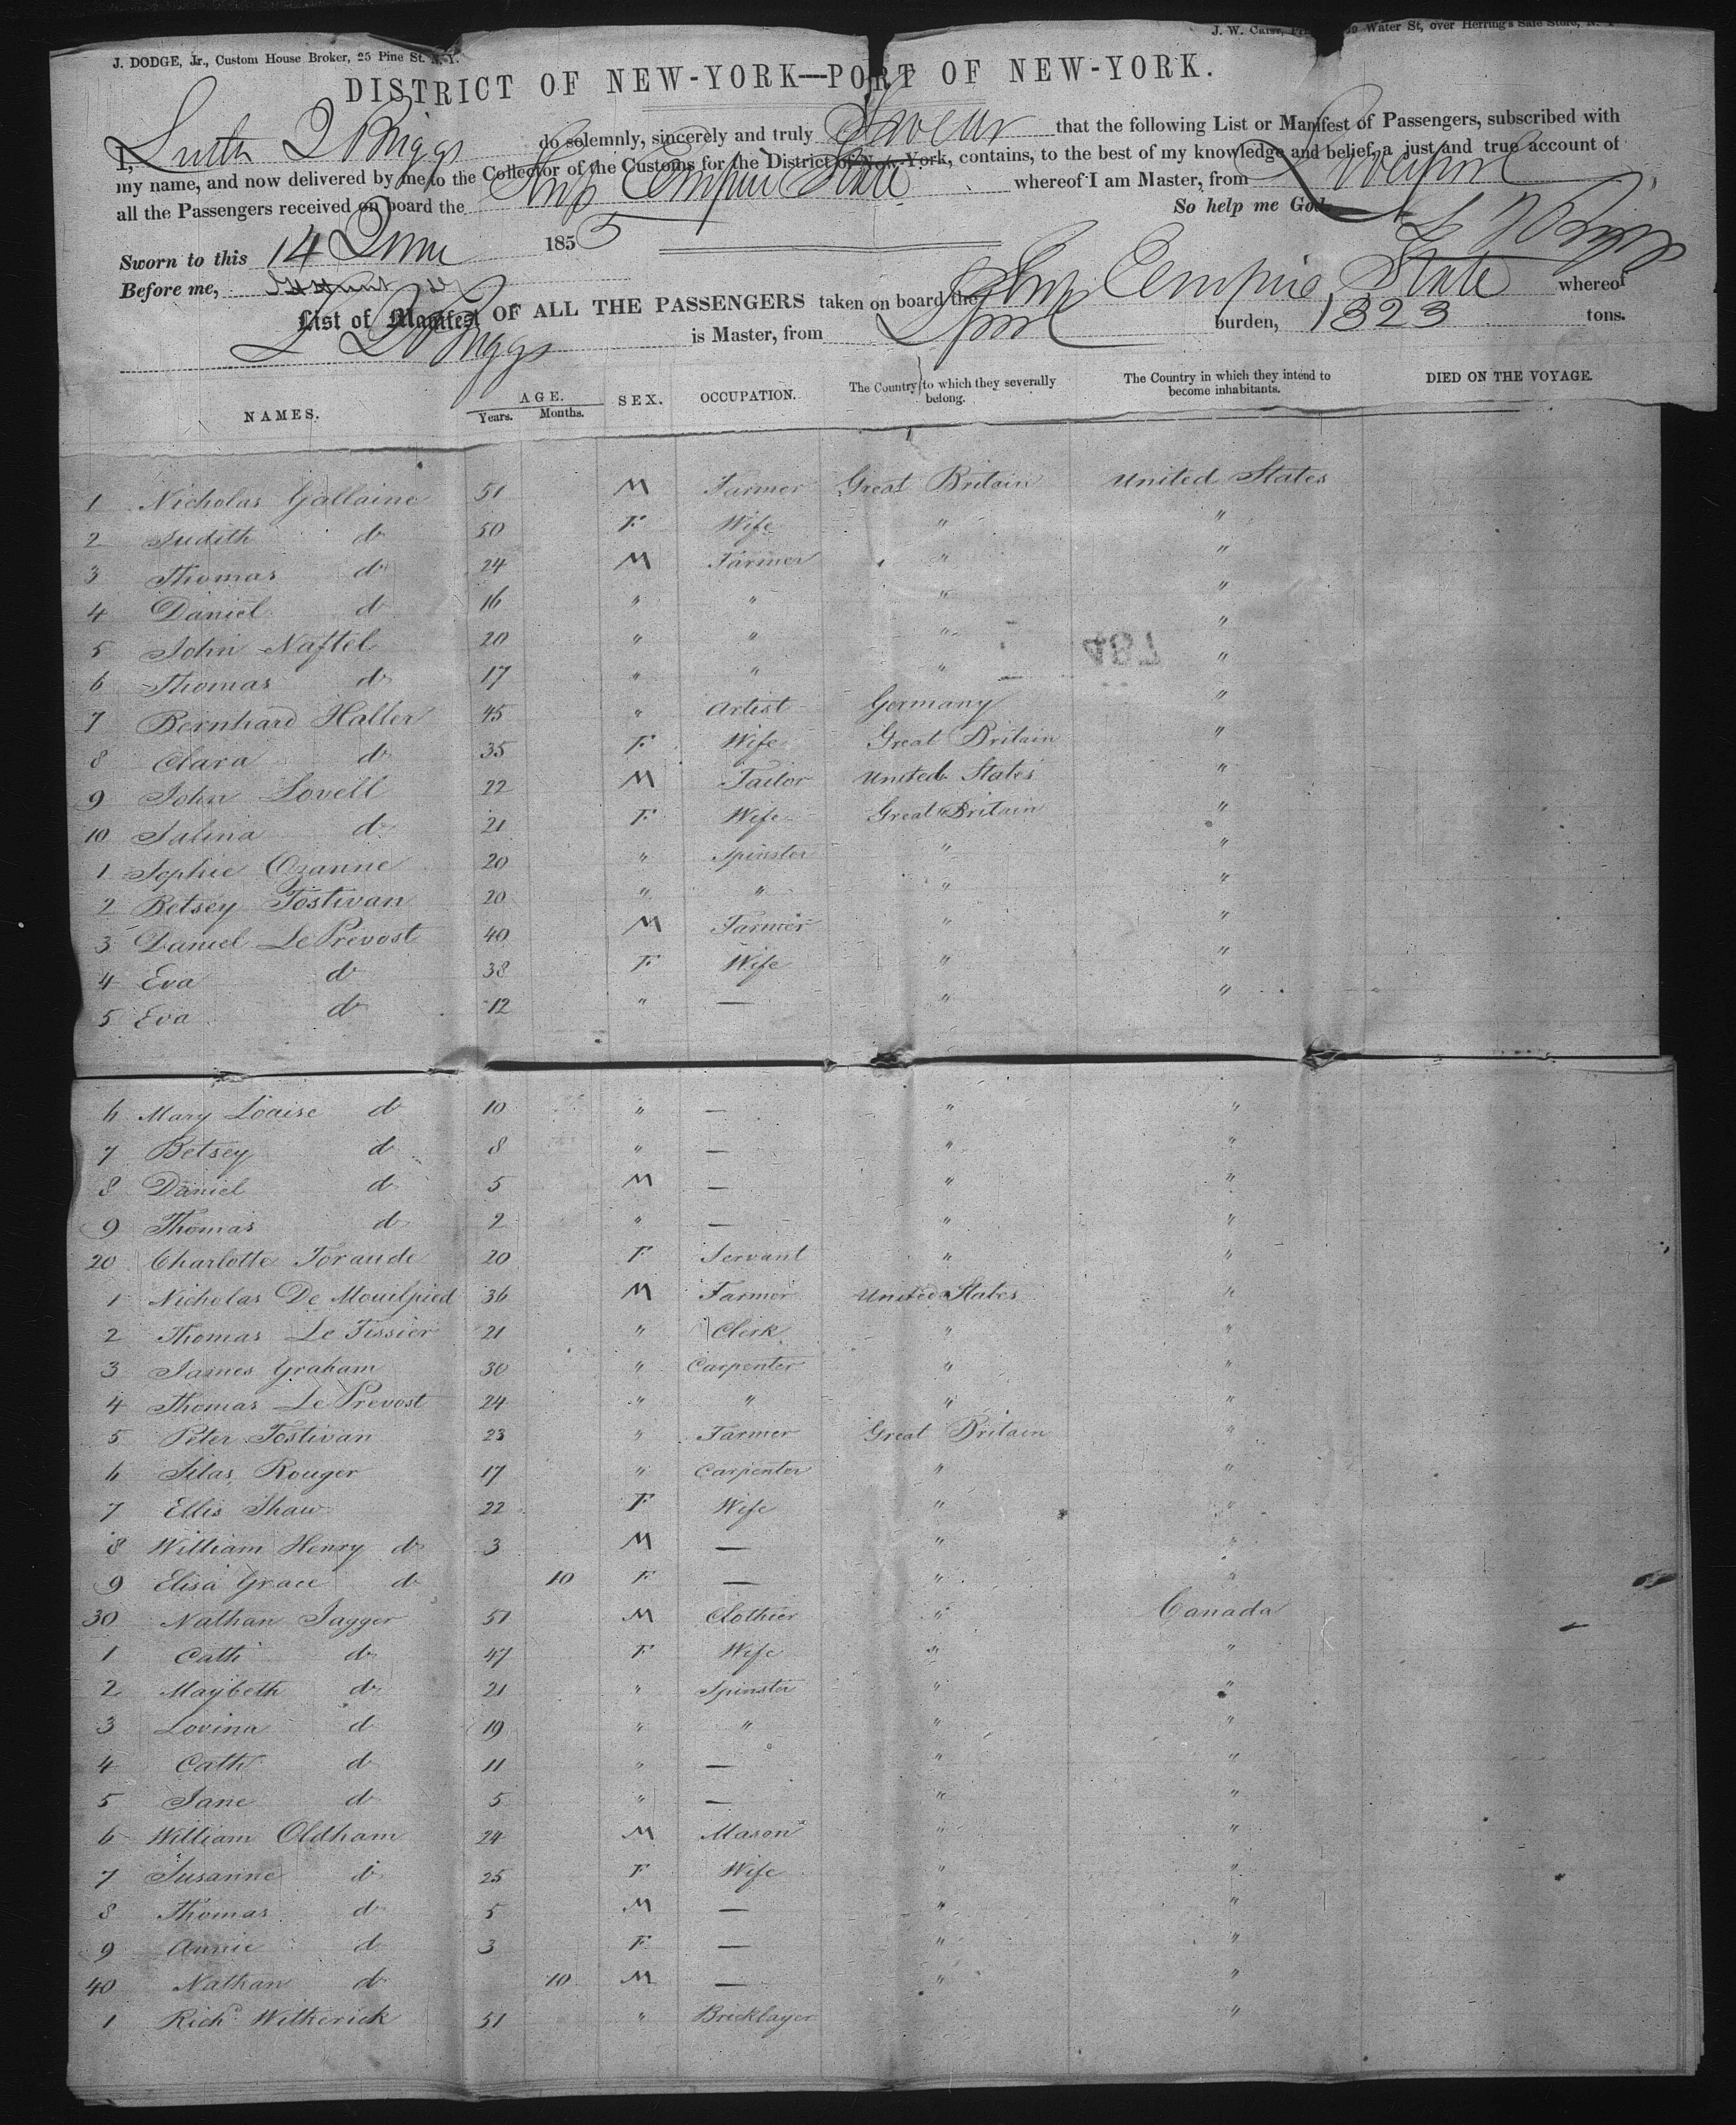 J. DODGE, Jr., Custom House Broker, 25 Pine St. N. Y.
J. W. Water St, over Herring's Safe Store, N. Y
DISTRICT OF NEW-YORK—PORT OF NEW-YORK.
I, Luther Briggs do solemnly, sincerely and truly Swear that the following List or Manifest of Passengers, subscribed with
my name, and now delivered by me to the Collector of the Customs for the District of New-York, contains, to the best of my knowledge and belief, a just and true account of
all the Passengers received on board the Ship Empire State whereof I am Master, from Liverpool
So help me God.
Sworn to this 14 June 1855
Before me,
List or Manifest OF ALL THE PASSENGERS taken on board the Ship Empire State whereof
L Briggs is Master, from Lpool burden, 1323 tons.
NAMES. AGE. Years. Months. SEX. OCCUPATION. The Country to which they severally belong. The Country in which they intend to become inhabitants. DIED ON THE VOYAGE.
1 Nicholas Gallaine 51 M Farmer Great Britain United States
2 Judith do 50 F Wife " "
3 Thomas do 24 M Farmer " "
4 Daniel do 16 " " " "
5 John Naftel 20 " " " "
6 Thomas do 17 " " " "
7 Bernhard Haller 45 " Artist Germany "
8 Clara do 35 F Wife Great Britain "
9 John Lovell 22 M Tailor United States "
10 Salina do 21 F Wife Great Britain "
1 Sophie Ozanne 20 " Spinster " "
2 Betsey Tostivan 20 " " " "
3 Daniel Le Prevost 40 M Farmer " "
4 Eva do 38 F Wife " "
5 Eva do 12 " — " "
6 Mary Louise do 10 " — " "
7 Betsey do 8 " — " "
8 Daniel do 5 M — " "
9 Thomas do 2 " — " "
20 Charlotte Toraude 20 F Servant " "
1 Nicholas De Mouilpied 36 M Farmer United States "
2 Thomas Le Tissier 21 " Clerk " "
3 James Graham 30 " Carpenter " "
4 Thomas Le Prevost 24 " " " "
5 Peter Tostivan 23 " Farmer Great Britain "
6 Silas Rouger 17 " Carpenter " "
7 Ellis Shaw 22 F Wife " "
8 William Henry do 3 M — " "
9 Elisa Grace do 10 F — " "
30 Nathan Jagger 51 M Clothier " Canada
1 Cath do 47 F Wife " "
2 Maybeth do 21 " Spinster " "
3 Lovina do 19 " " " "
4 Cath do 11 " — " "
5 Jane do 5 " — " "
6 William Oldham 24 M Mason " "
7 Susanne do 25 F Wife " "
8 Thomas do 5 M — " "
9 Annie do 3 F — " "
40 Nathan do 10 M — " "
1 Richd Witherick 51 " Bricklayer "